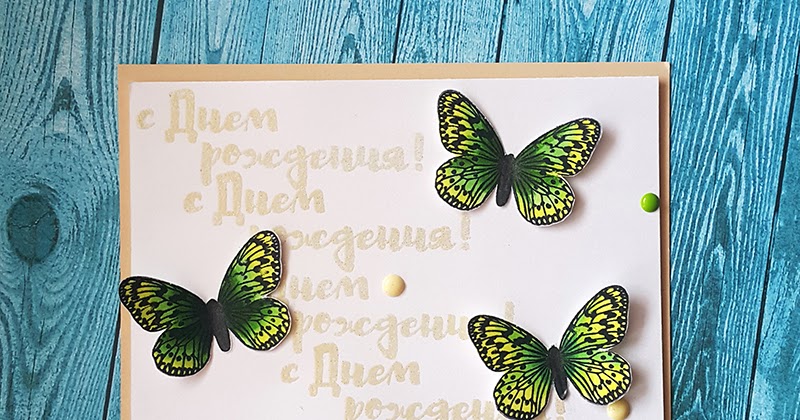 с Днем
рождения!
с Днем
рождения!
Днем
рождения!
с Днем
рождения!